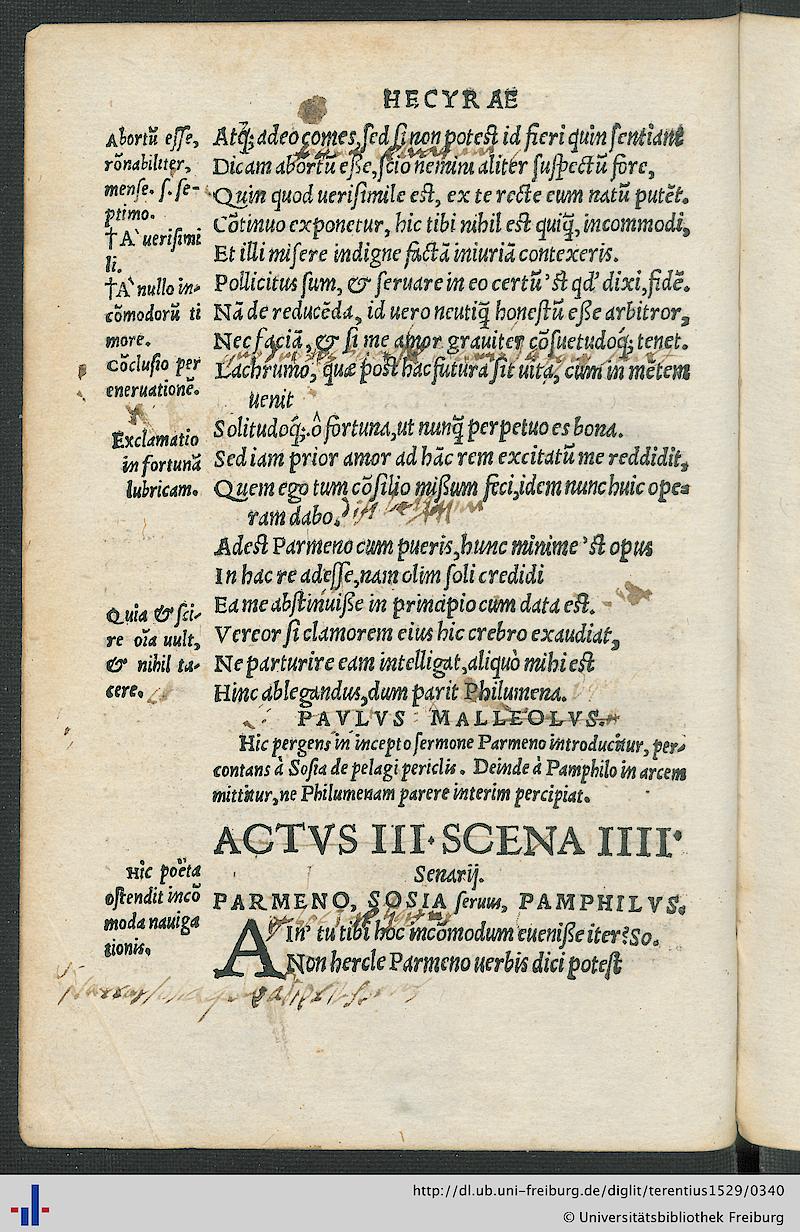 HECYRAE
Abortū esse,
rōnabiliter,
mense. s. se-
ptimo.
†A` uerisimi
li.
†A` nullo in-
cōmodorū ti
more.
Cōclusio per
eneruationē.
Exclamatio
in fortunā
lubricam.
Quia & sci-
re oīa uult,
& nihil ta-
cere.
Hic poëta
ostendit incō
moda nauiga
tionis.
Atq; adeo comes, sed si non potest id fieri quin sentiant
Dicam abortū esse, scio nemini aliter suspectū fore,
Quin quod uerisimile est, ex te recte eum natū putēt.
Cōtinuo exponetur, hic tibi nihil est quiq̄, incommodi,
Et illi misere indigne factā iniuriā contexeris.
Pollicitus sum, & seruare in eo certū'st qd' dixi, fidē.
Nā de reducēda, id uero neutiq̄ honestū esse arbitror,
Nec faciā, & si me amor grauiter cōsuetudoq́; tenet.
Lachrumo, quæ post hac futura sit uita, cum in mētem
uenit
Solitudoq́;. ô fortuna, ut nunq̄ perpetuo es bona.
Sed iam prior amor ad hāc rem excitatū me reddidit,
Quem ego tum cōsilio missum feci, idem nunc huic ope-
ram dabo.
Adest Parmeno cum pueris, hunc minime'st opus
In hac re adesse, nam olim soli credidi
Ea me abstinuisse in principio cum data est.
Vereor si clamorem eius hic crebro exaudiat,
Ne parturire eam intelligat, aliquò mihi est
Hinc ablegandus, dum parit Philumena.
PAVLVS MALLEOLVS.
Hic pergens in incepto sermone Parmeno introducitur, per-
contans à Sosia de pelagi periclis. Deinde à Pamphilo in arcem
mittitur, ne Philumenam parere interim percipiat.
ACTVS III. SCENA IIII.
Senarij.
PARMENO, SOSIA seruus, PAMPHILVS.
AIn' tu tibi hoc incōmodum euenisse iter? So.
Non hercle Parmeno uerbis dici potest
http://dl.ub.uni-freiburg.de/diglit/terentius1529/0340
© Universitätsbibliothek Freiburg